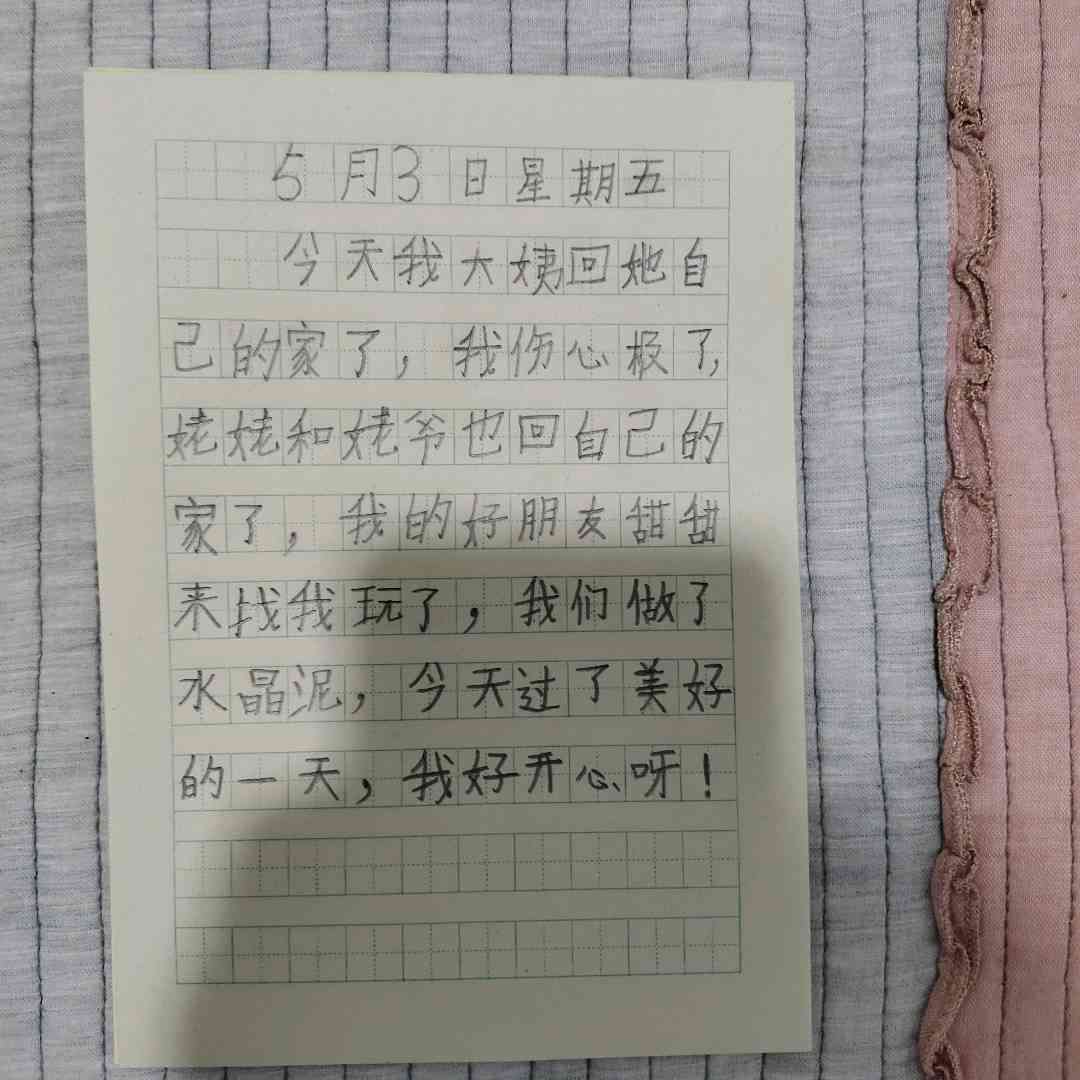 5月3日星期五
今天我大姨回她自
己的家了，我伤心极了，
姥姥和姥爷也回自己的
家了，我的好朋友甜甜
来找我玩了，我们做了
水晶泥，今天过了美好
的一天，我好开心呀！